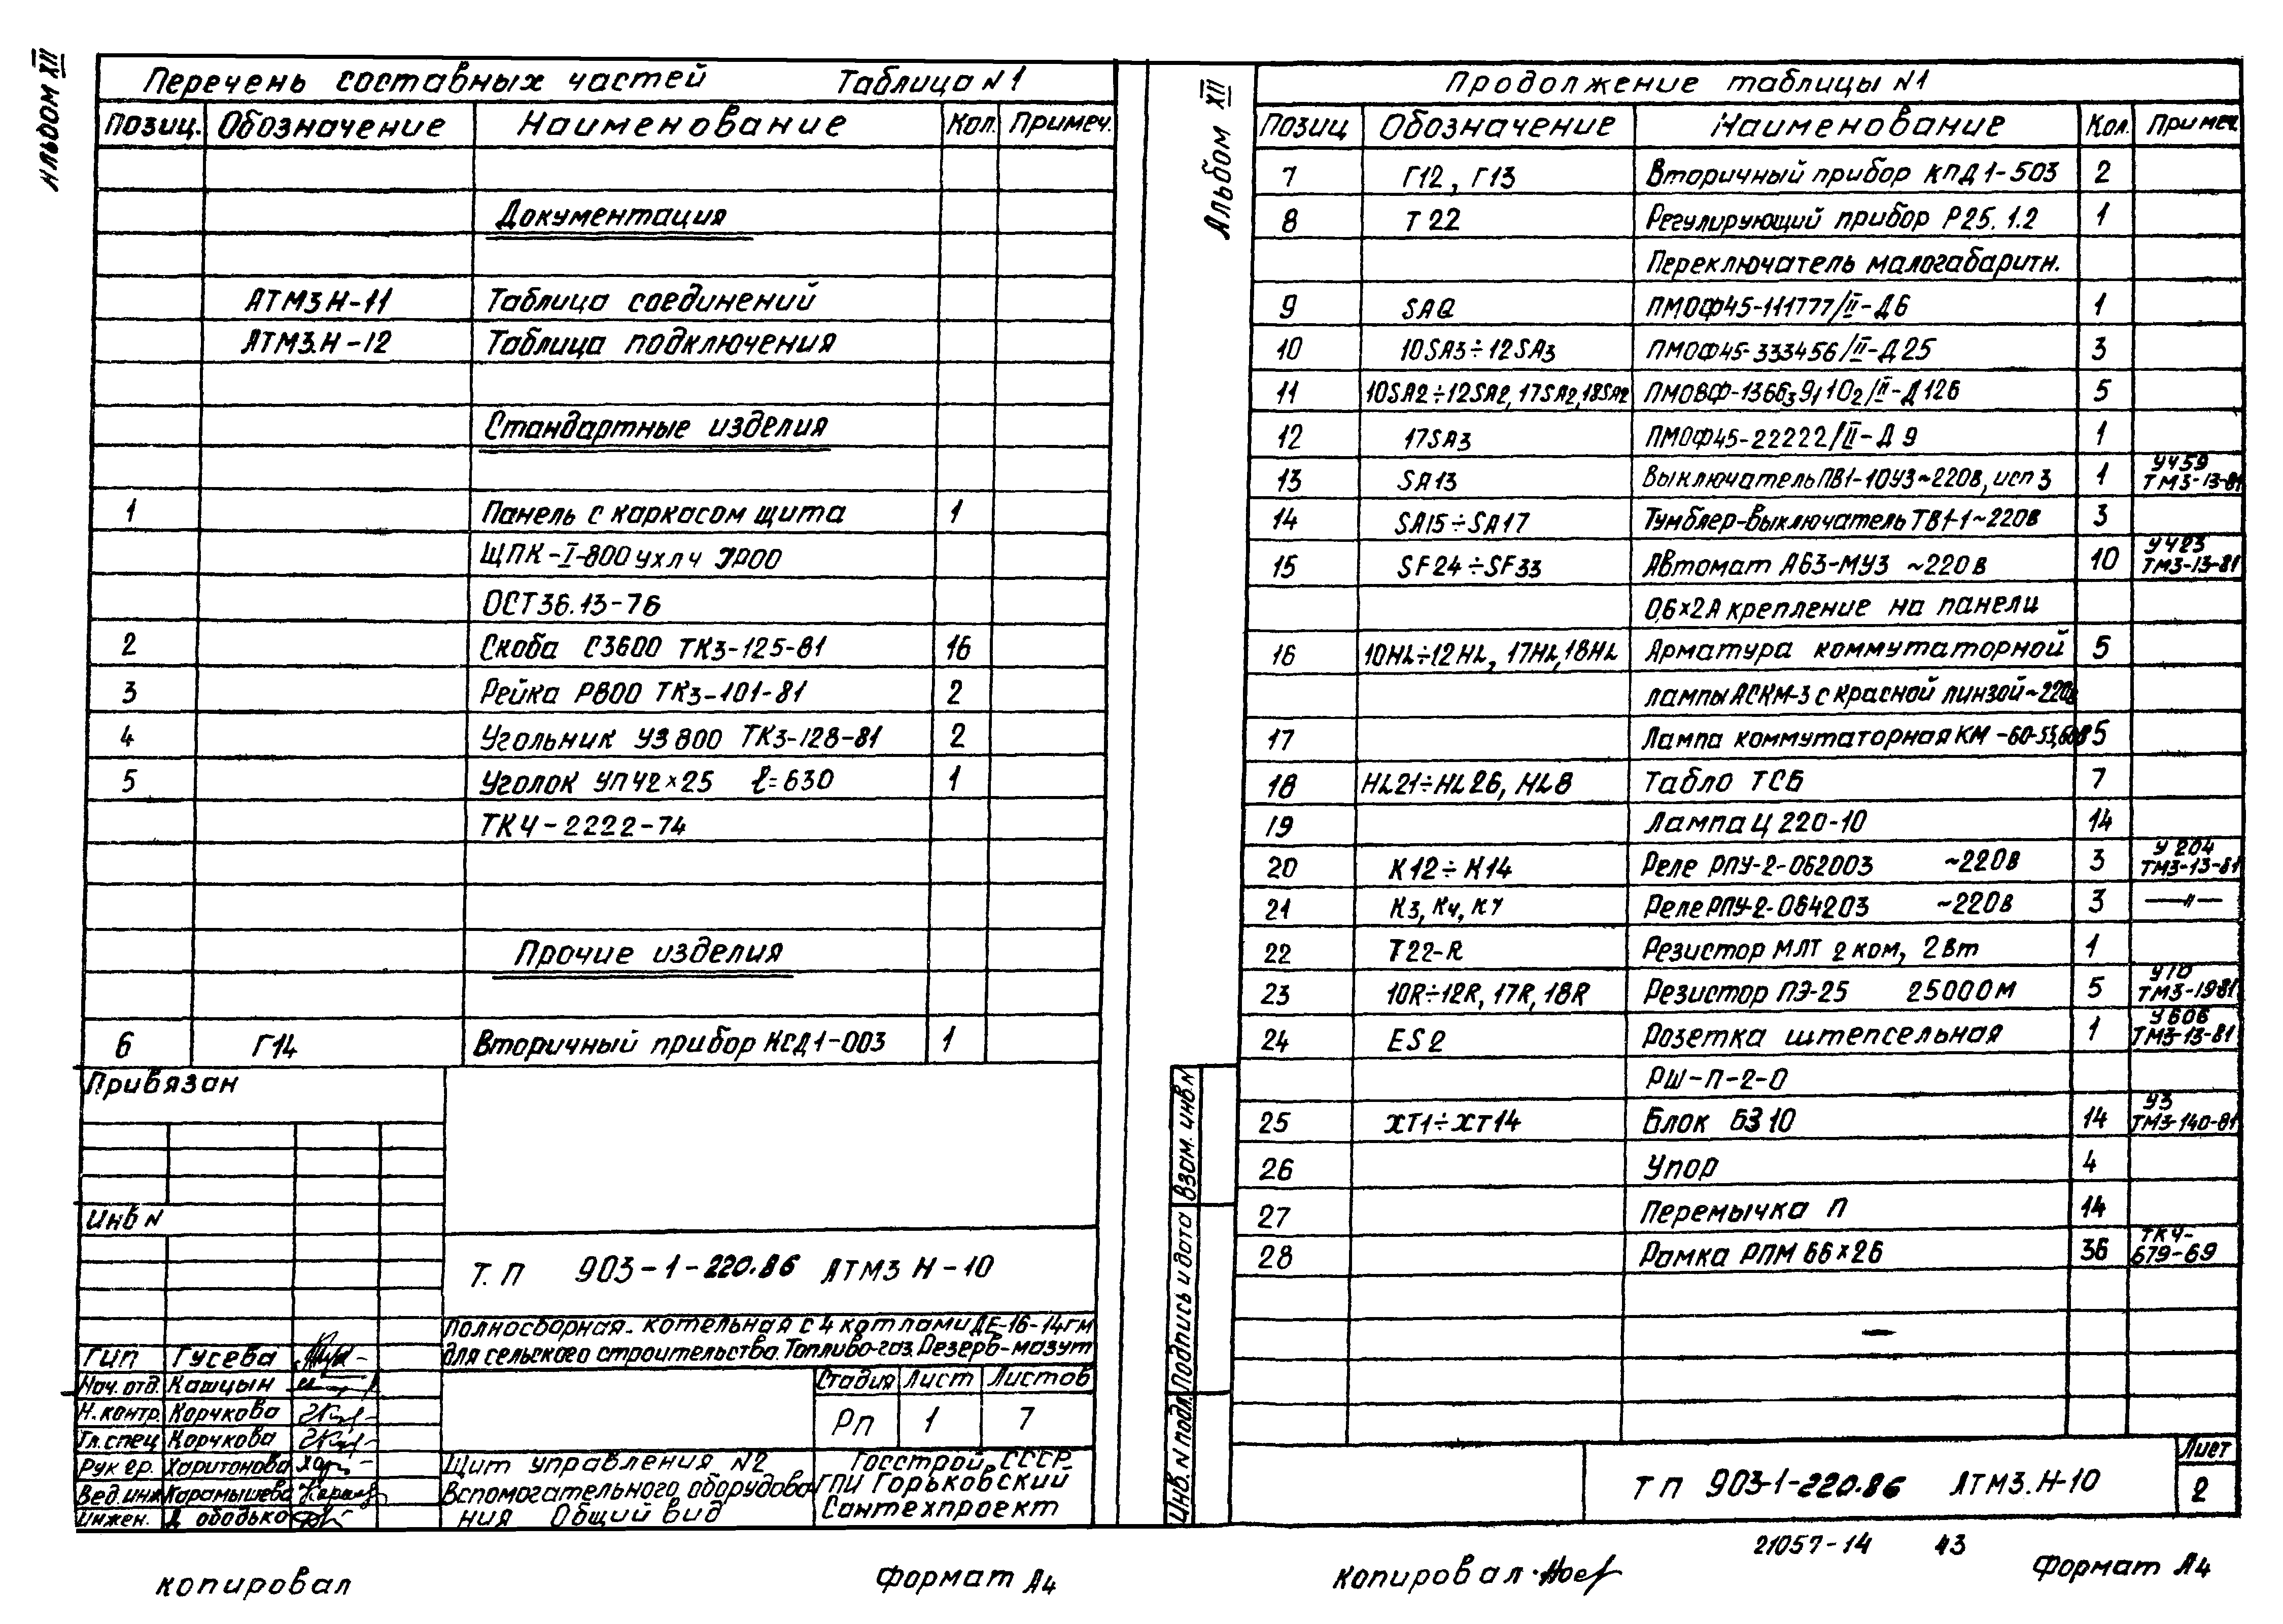 Альбом XII
Перечень составных частей Таблица N1
Позиц. Обозначение Наименование Кол. Примеч.
Документация
АТМ3 Н-11 Таблица соединений
АТМ3.Н-12 Таблица подключения
Стандартные изделия
1 Панель с каркасом щита 1
ЩПК-I-800 УХЛ4 УР00
ОСТ36.13-76
2 Скоба С3600 ТК3-125-81 16
3 Рейка Р800 ТК3-101-81 2
4 Угольник УЗ800 ТК3-128-81 2
5 Уголок УП42×25 ℓ=630 1
ТК4-2222-74
Прочие изделия
6 Г14 Вторичный прибор КСД1-003 1
Привязан
Инв N
Т.П 903-1-220.86 АТМ3 Н-10
Полносборная котельная с 4 котлами ДЕ-16-14гм
для сельского строительства. Топливо-газ. Резерв-мазут
ГИП Гусева
Нач. отд. Кащын
Н. контр. Корчкова
Гл. спец Корчкова
Рук гр. Харитонова
Вед. инж Карамышева
Инжен.
Стадия Лист Листов
Рп 1 7
Щит управления N2
Вспомогательного оборудова
ния Общий вид
Госстрой СССР
ГПИ Горьковский
Сантехпроект
Копировал
Формат А4
Альбом XII
Продолжение таблицы N1
Позиц Обозначение Наименование Кол. Примеч
7 Г12, Г13 Вторичный прибор КПД1-503 2
8 Т22 Регулирующий прибор Р25.1.2 1
Переключатель малогабаритн.
9 SAQ ПМОФ45-111777/II-Д6 1
10 10SA3÷12SA3 ПМОФ45-333456/II-Д25 3
11 10SA2÷12SA2, 17SA2, 18SA2 ПМОВФ-1366₃9₁10₂/II-Д126 5
12 17SA3 ПМОФ45-22222/II-Д9 1
13 SA13 Выключатель ПВ1-10У3~220в, исп 3 1 У459 ТМ3-13-81
14 SA15÷SA17 Тумблер-выключатель ТВ1-1~220в 3
15 SF24÷SF33 Автомат А63-МУ3 ~220в 10 У423 ТМ3-13-81
0,6×2А крепление на панели
16 10HL÷12HL, 17HL, 18HL Арматура коммутаторной 5
лампы АСКМ-3 с красной линзой~220в
17 Лампа коммутаторная КМ-60-55,60в 5
18 HL21÷HL26, HL8 Табло ТСБ 7
19 Лампа Ц 220-10 14
20 К12÷К14 Реле РПУ-2-062003 ~220в 3 У204 ТМ3-13-81
21 К3, К4, К7 Реле РПУ-2-064203 ~220в 3 —〃—
22 Т22-R Резистор МЛТ 2 ком, 2вт 1
23 10R÷12R, 17R, 18R Резистор ПЭ-25 2500 ОМ 5 У10 ТМ3-1981
24 ES2 Розетка штепсельная 1 У606 ТМ3-13-81
РШ-П-2-0
25 ХТ1÷ХТ14 Блок БЗ 10 14 У3 ТМ3-140-81
26 Упор 4
27 Перемычка П 14
28 Рамка РПМ 66×26 36 ТК4-679-69
Взам. инв. N
Подпись и дата
Инв. N подл.
ТП 903-1-220.86 АТМ3.Н-10
Лист
2
21057-14 43
Копировал
Формат А4